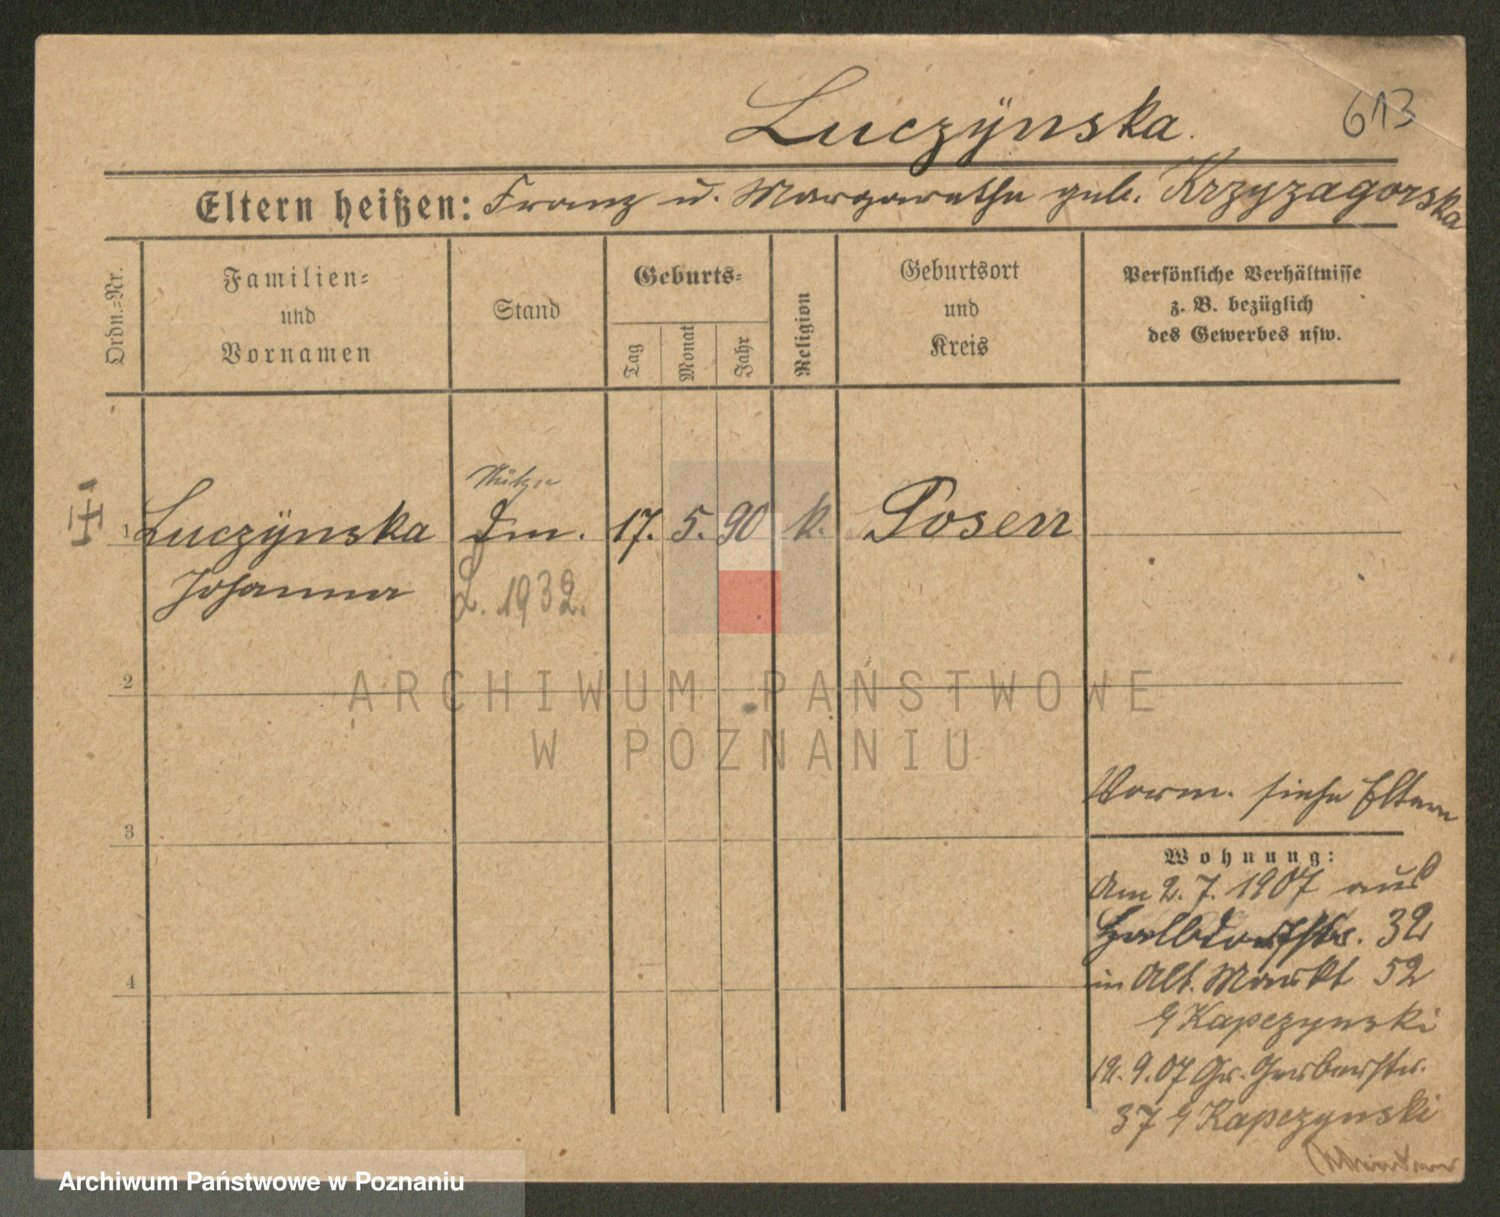 Luczÿnska.
613
Eltern heißen: Franz u. Margarethe geb. Krzyzagorska
Ordn.-Nr.
Familien-
und
Vornamen
Stand
Geburts-
Tag
Monat
Jahr
Religion
Geburtsort
und
Kreis
Persönliche Verhältnisse
z. B. bezüglich
des Gewerbes usw.
Stütze
1 Luczÿnska Dm. 17. 5. 90 k. Posen
Johanna L. 1932.
2
ARCHIWUM PAŃSTWOWE
W POZNANIU
Vorm. siehe Eltern
3
Wohnung:
Am 2.7.1907 aus
Halbdorfstr. 32
in Alt. Markt 52
4
Kapczynski
12.9.07 Gr. Gerberstr.
37 Kapczynski
Archiwum Państwowe w Poznaniu